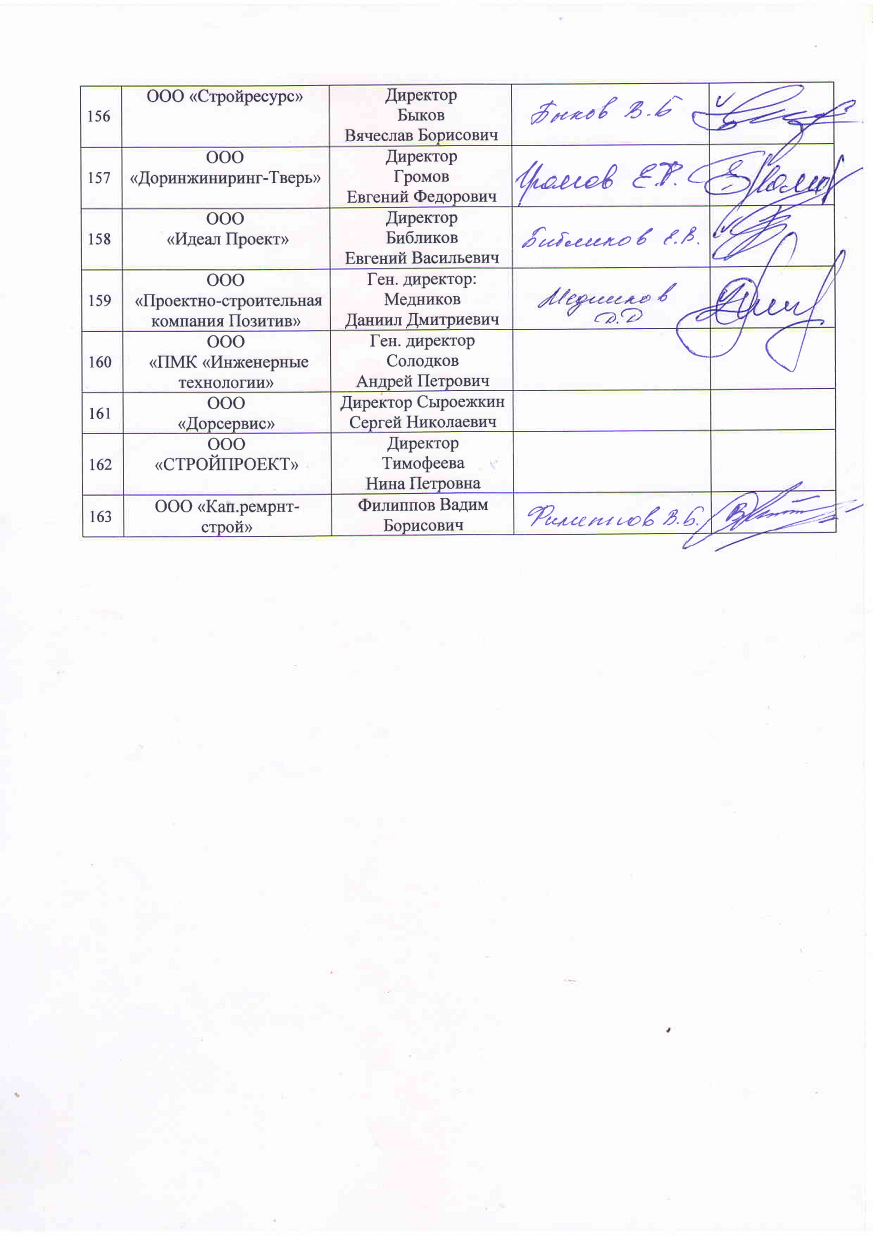 156
ООО «Стройресурс»
Директор
Быков
Вячеслав Борисович
Быков В.Б
157
ООО
«Доринжиниринг-Тверь»
Директор
Громов
Евгений Федорович
Громов Е.Ф.
158
ООО
«Идеал Проект»
Директор
Библиков
Евгений Васильевич
Библиков Е.В.
159
ООО
«Проектно-строительная
компания Позитив»
Ген. директор:
Медников
Даниил Дмитриевич
Медников
Д.Д
160
ООО
«ПМК «Инженерные
технологии»
Ген. директор
Солодков
Андрей Петрович
161
ООО
«Дорсервис»
Директор Сыроежкин
Сергей Николаевич
162
ООО
«СТРОЙПРОЕКТ»
Директор
Тимофеева
Нина Петровна
163
ООО «Кап.ремрнт-
строй»
Филиппов Вадим
Борисович
Филиппов В.Б.